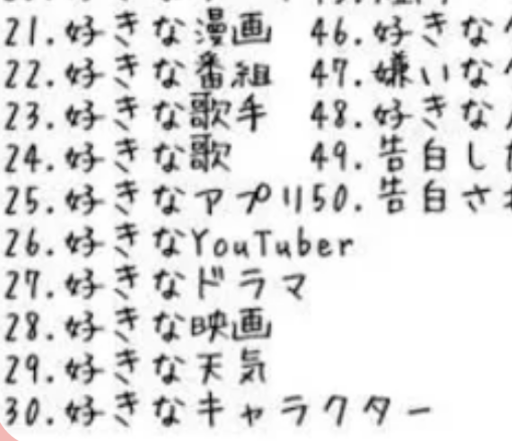 21.好きな漫画
22.好きな番組
23.好きな歌手
24.好きな歌
25.好きなアプリ
26.好きなYouTuber
27.好きなドラマ
28.好きな映画
29.好きな天気
30.好きなキャラクター
46.好きな
47.嫌いな
48.好きな
49.告白し
50.告白さ